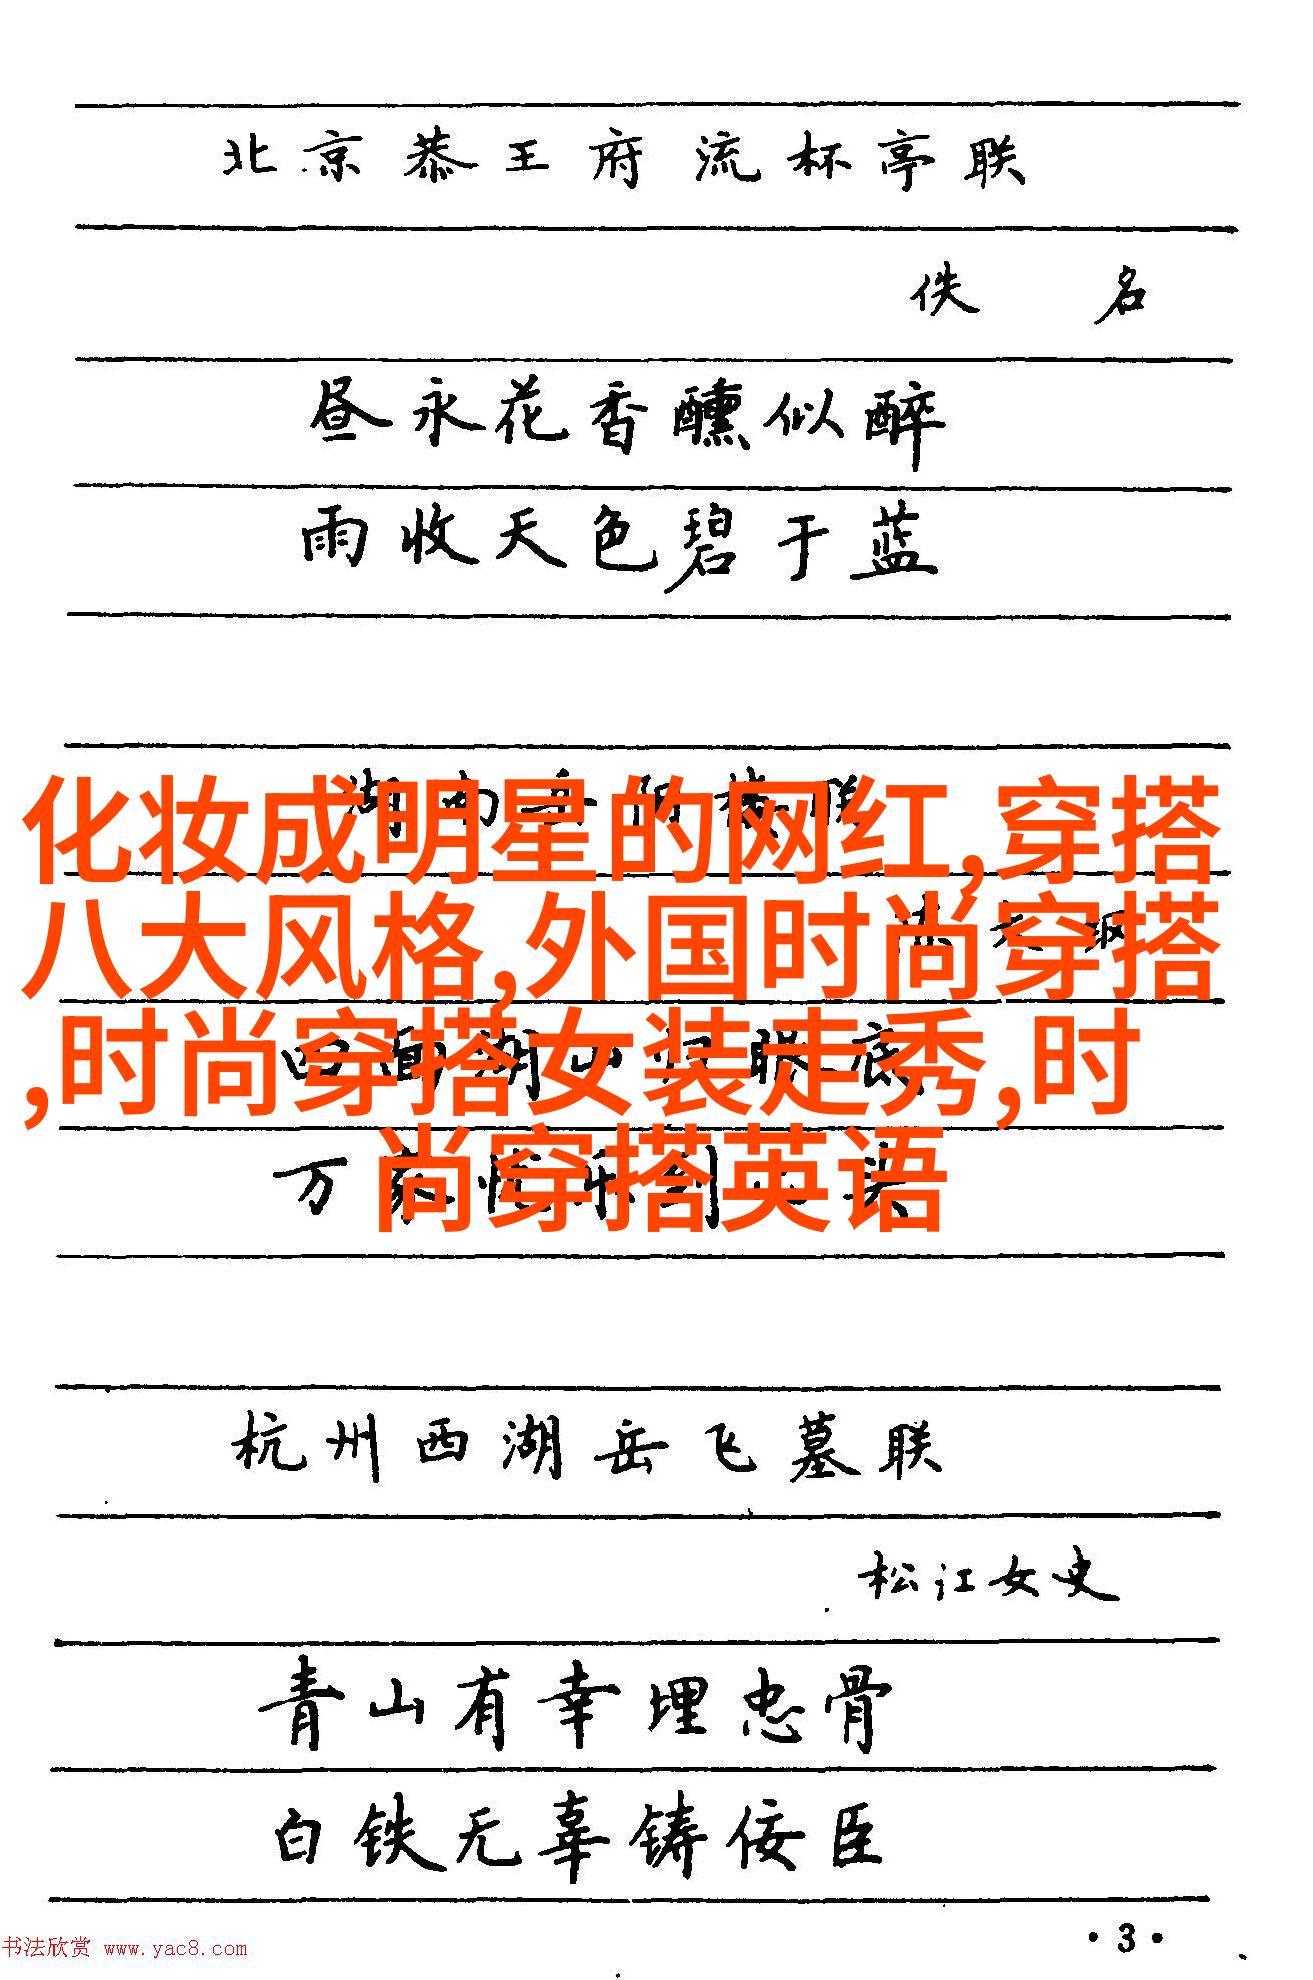 北京恭王府流杯亭联
佚名
昼永花香醺似醉
雨收天色碧于蓝
湖南岳阳楼联
化妆成明星的网红,穿搭
八大风格,外国时尚穿搭
,时尚穿搭女装走秀,时
尚穿搭英语
四面湖山归眼底
万家忧乐到心头
杭州西湖岳飞墓联
松江女史
青山有幸埋忠骨
白铁无辜铸佞臣
书法欣赏 www.yac8.com
·3·